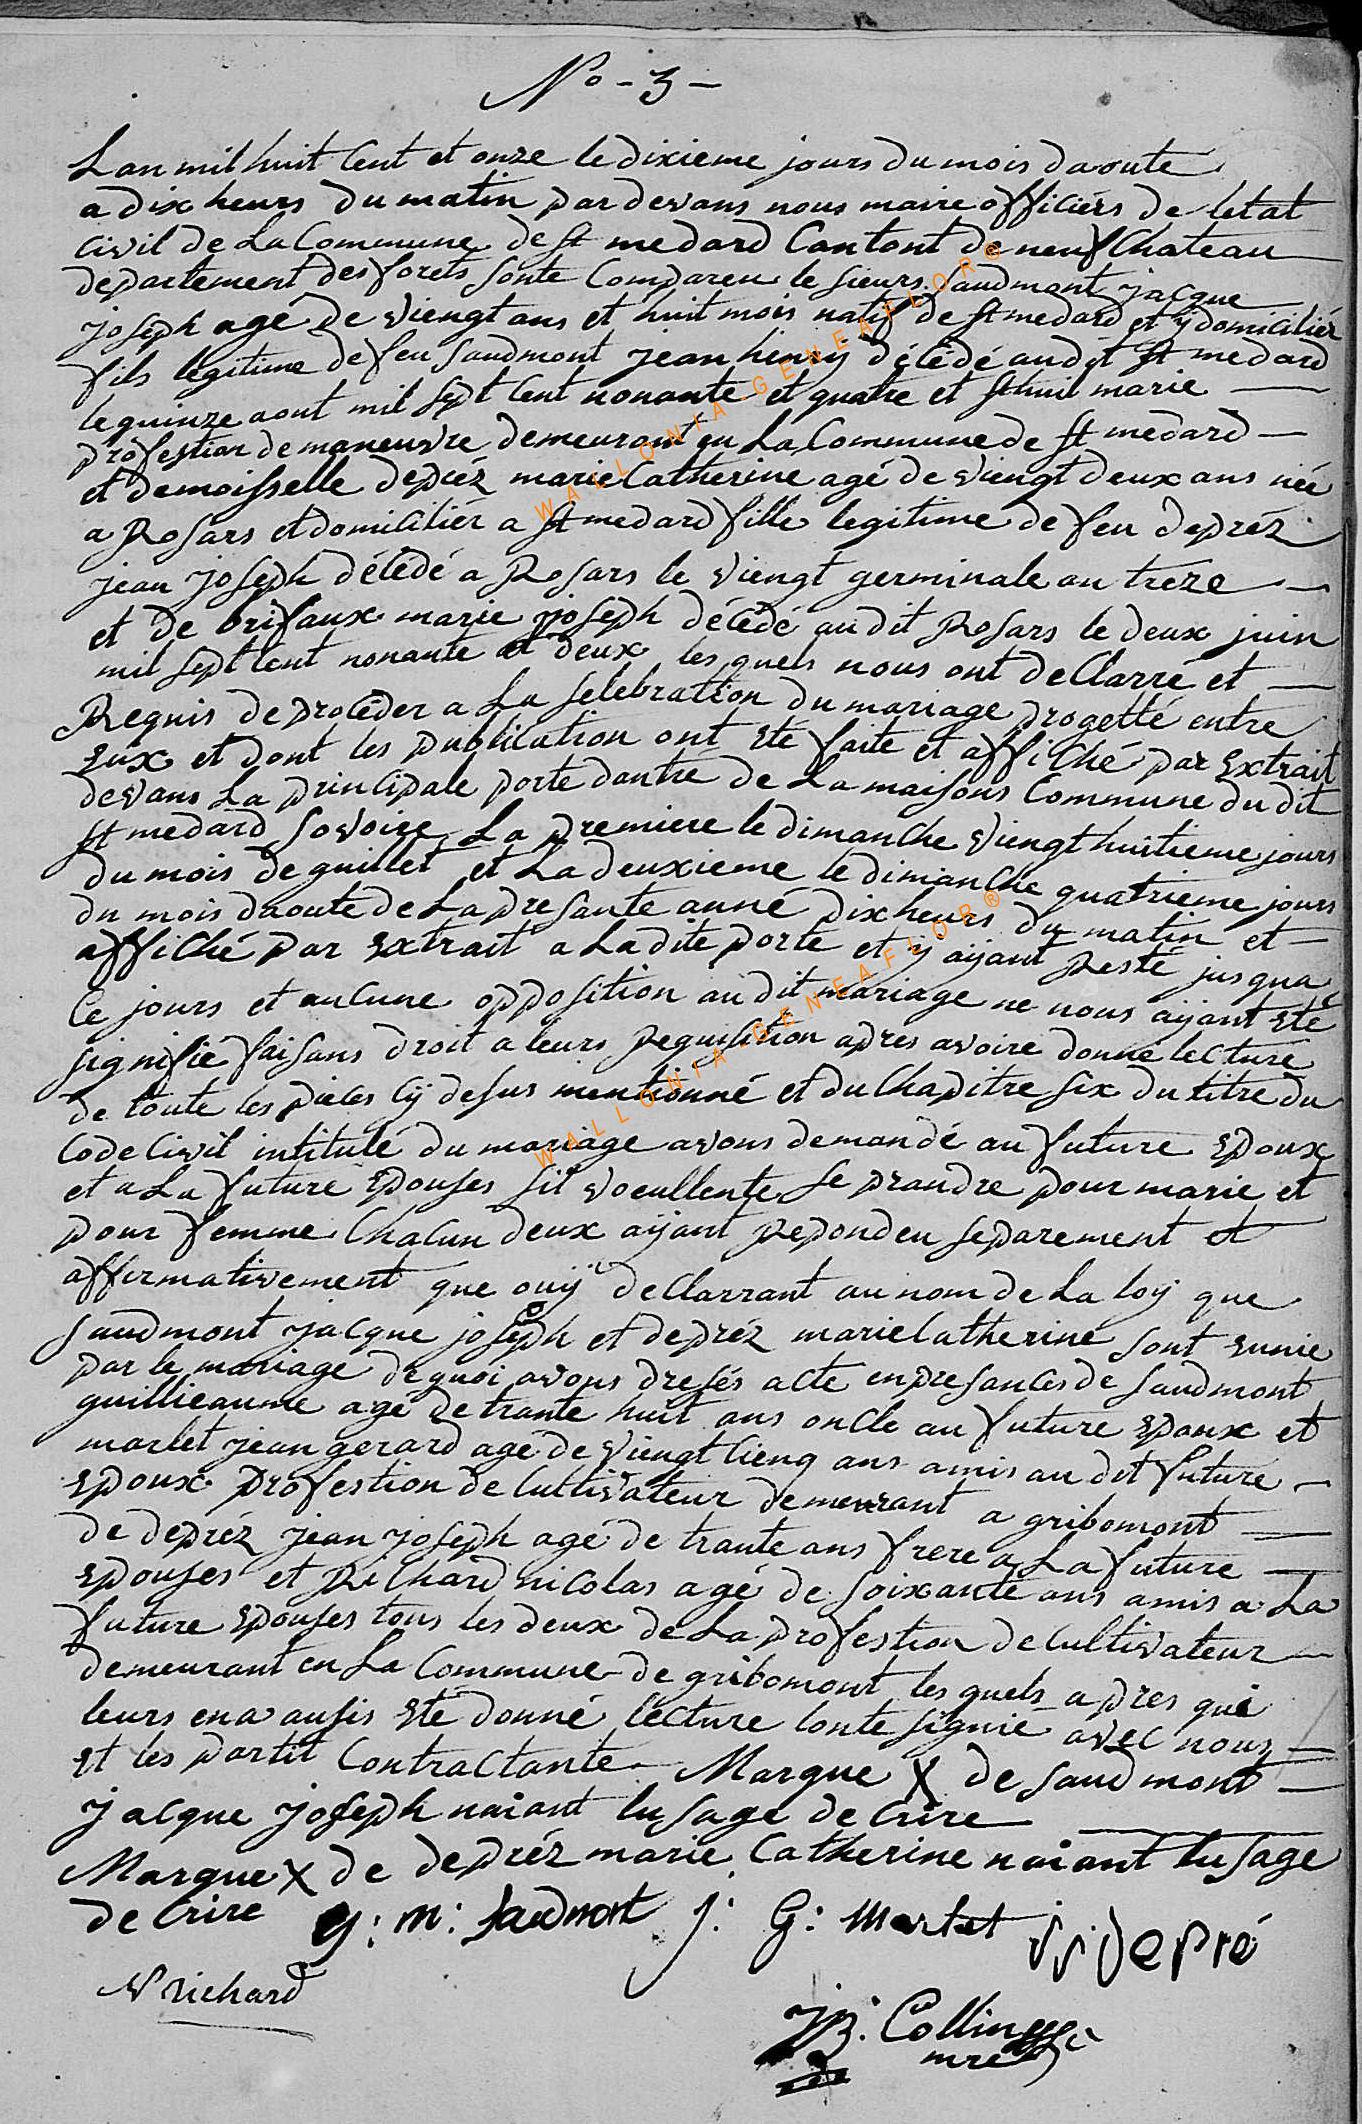 No - 3 -
Lan mil huit Cent et onze le dixieme jours du mois daoute
a dix heurs du matin par devans nous maire officiérs de letat
Civil de La Commune de st medard Cantont de neufChateau
departement des forets sonte Comparen le sieurs Saudmont jacque
joseph agé de viengt ans et huit mois natif de st medard et ÿ domiciliér
fils legitime de feu saudmont jean henrÿ décédé audit st medard
le quinze aout mil sept Cent nonante et quatre et marie
profestion de maneuvre demeurant en La Commune de st medard
et demoisselle depréz marie Catherine agé de viengt deux ans née
a Rosars et domiciliér a st medard fille legitime de feu depréz
jean joseph décédé a Rosars le viengt germinale an treze
et de brifaux marie joseph décédé audit Rosars le deux juin
mil sept Cent nonante et deux les quels nous ont deClarré et
Requis de proCéder a La selebration du mariage progetté entre
eux et dont les publiCation ont eté faite et affiChé par extrait
devans La prinCipale porte dantré de La maisons Commune du dit
st medard savoire La premiere le dimanche viengt huitieme jours
du mois de guillet et La deuxieme le dimanche quatrieme jours
du mois daoute de La presante anné dix heurs du matin et
affiChé par extrait a La dite porte et ÿ aÿant resté jusqua
Ce jours et auCune opposition au dit mariage ne nous aÿant eté
signifié faisans droit a leurs requisition apres avoire donné leCture
de toute les pieCes Cÿ desus mentionné et du Chapitre six du titre du
Code Civil intitulé du mariage avons demandé au future epoux
et a La future epouses sil voeullente se prandre pour marie et
pour femme Chacun deux aÿant repondeu separement et
affirmativement que ouÿ deClarrant au nom de La loÿ que
saudmont jacque joseph et depréz marie Catherine sont eunie
par le mariage de quoi avons dresés acte en presances de saudmont
guillieaume agé de trante huit ans onCle au future epoux et
marlet jean gerard agé de viengt Cienq ans amis au dit future
epoux profestion de Cultivateur demeurant a gribomont
de depréz jean joseph agé de trante ans frere a La future
epouses et RiChard niColas agé de soixante ans amis a La
future epouses tous les deux de La profestion de Cultivateur
demeurant en La Commune de gribomont les quels apres que
leurs en a ausis eté donné leCture lonte signié avec nous
et les partit ContraCtante Marque X de saudmont
jaCque joseph naiant lusage deCrire
Marque X de depréz marie Catherine naiant lusage
deCrire g: m: saudmont j: G: Martet j j depré
N richard
JB: Collin
mre
WALLONIA-GENEAFLOR®
WALLONIA-GENEAFLOR®